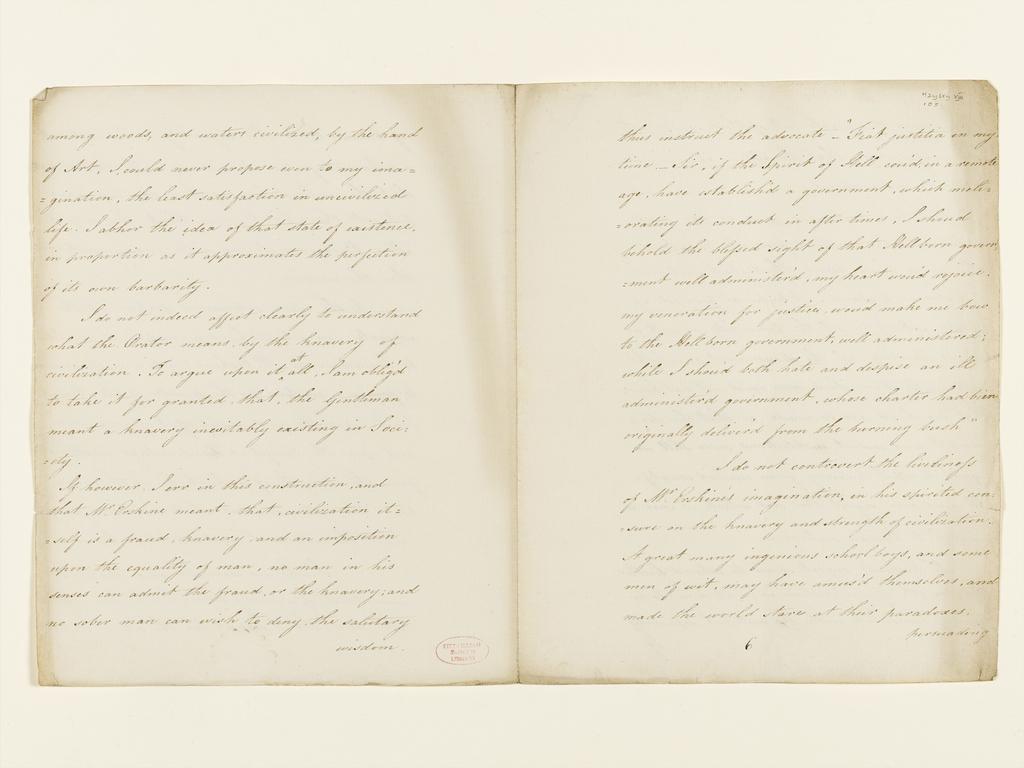 among woods, and waters civilized, by the hand
of Art, I could never propose even to my ima=
=gination, the least satisfaction in uncivilized
life. I abhor the idea of that state of existence,
in proportion as it approximates the perfection
of its own barbarity.
I do not indeed affect clearly to understand
what the Orator means, by the knavery of
civilization. To argue upon it at all, I am oblig'd
to take it for granted, that, the Gentleman
meant a knavery inevitably existing in Soci=
=ety.
If however, I err in this construction, and
that Mr. Erskine meant, that, civilization it=
=self is a fraud, knavery and an imposition
upon the equality of man, no man in his
senses can admit the fraud, or the knavery; and
no sober man can wish to deny, the salutary
wisdom.
FITZWILLIAM
MUSEUM
LIBRARY
Hayley XIII
105
thus instruct the advocate - "Fiat justitia in my
time - Sir, if the Spirit of Hell cou'd, in a remote
age, have establish'd a government, which meli=
=orating its conduct in after times, I shoud
behold the blessed sight of that Hell born govern=
=ment well administer'd, my heart wou'd rejoice.
my veneration for justice, wou'd make me bow
to the Hell born government, well administered;
while I shou'd both hate and despise an ill
administer'd government, whose charter had been
originally deliver'd from the burning bush"
I do not controvert the liveliness
of Mr. Erskine's imagination, in his spirited cen=
=sure on the knavery and strength of civilization.
A great many ingenious school boys, and some
men of wit, may have amus'd themselves, and
made the world stare at their paradoxes.
Persuading
6